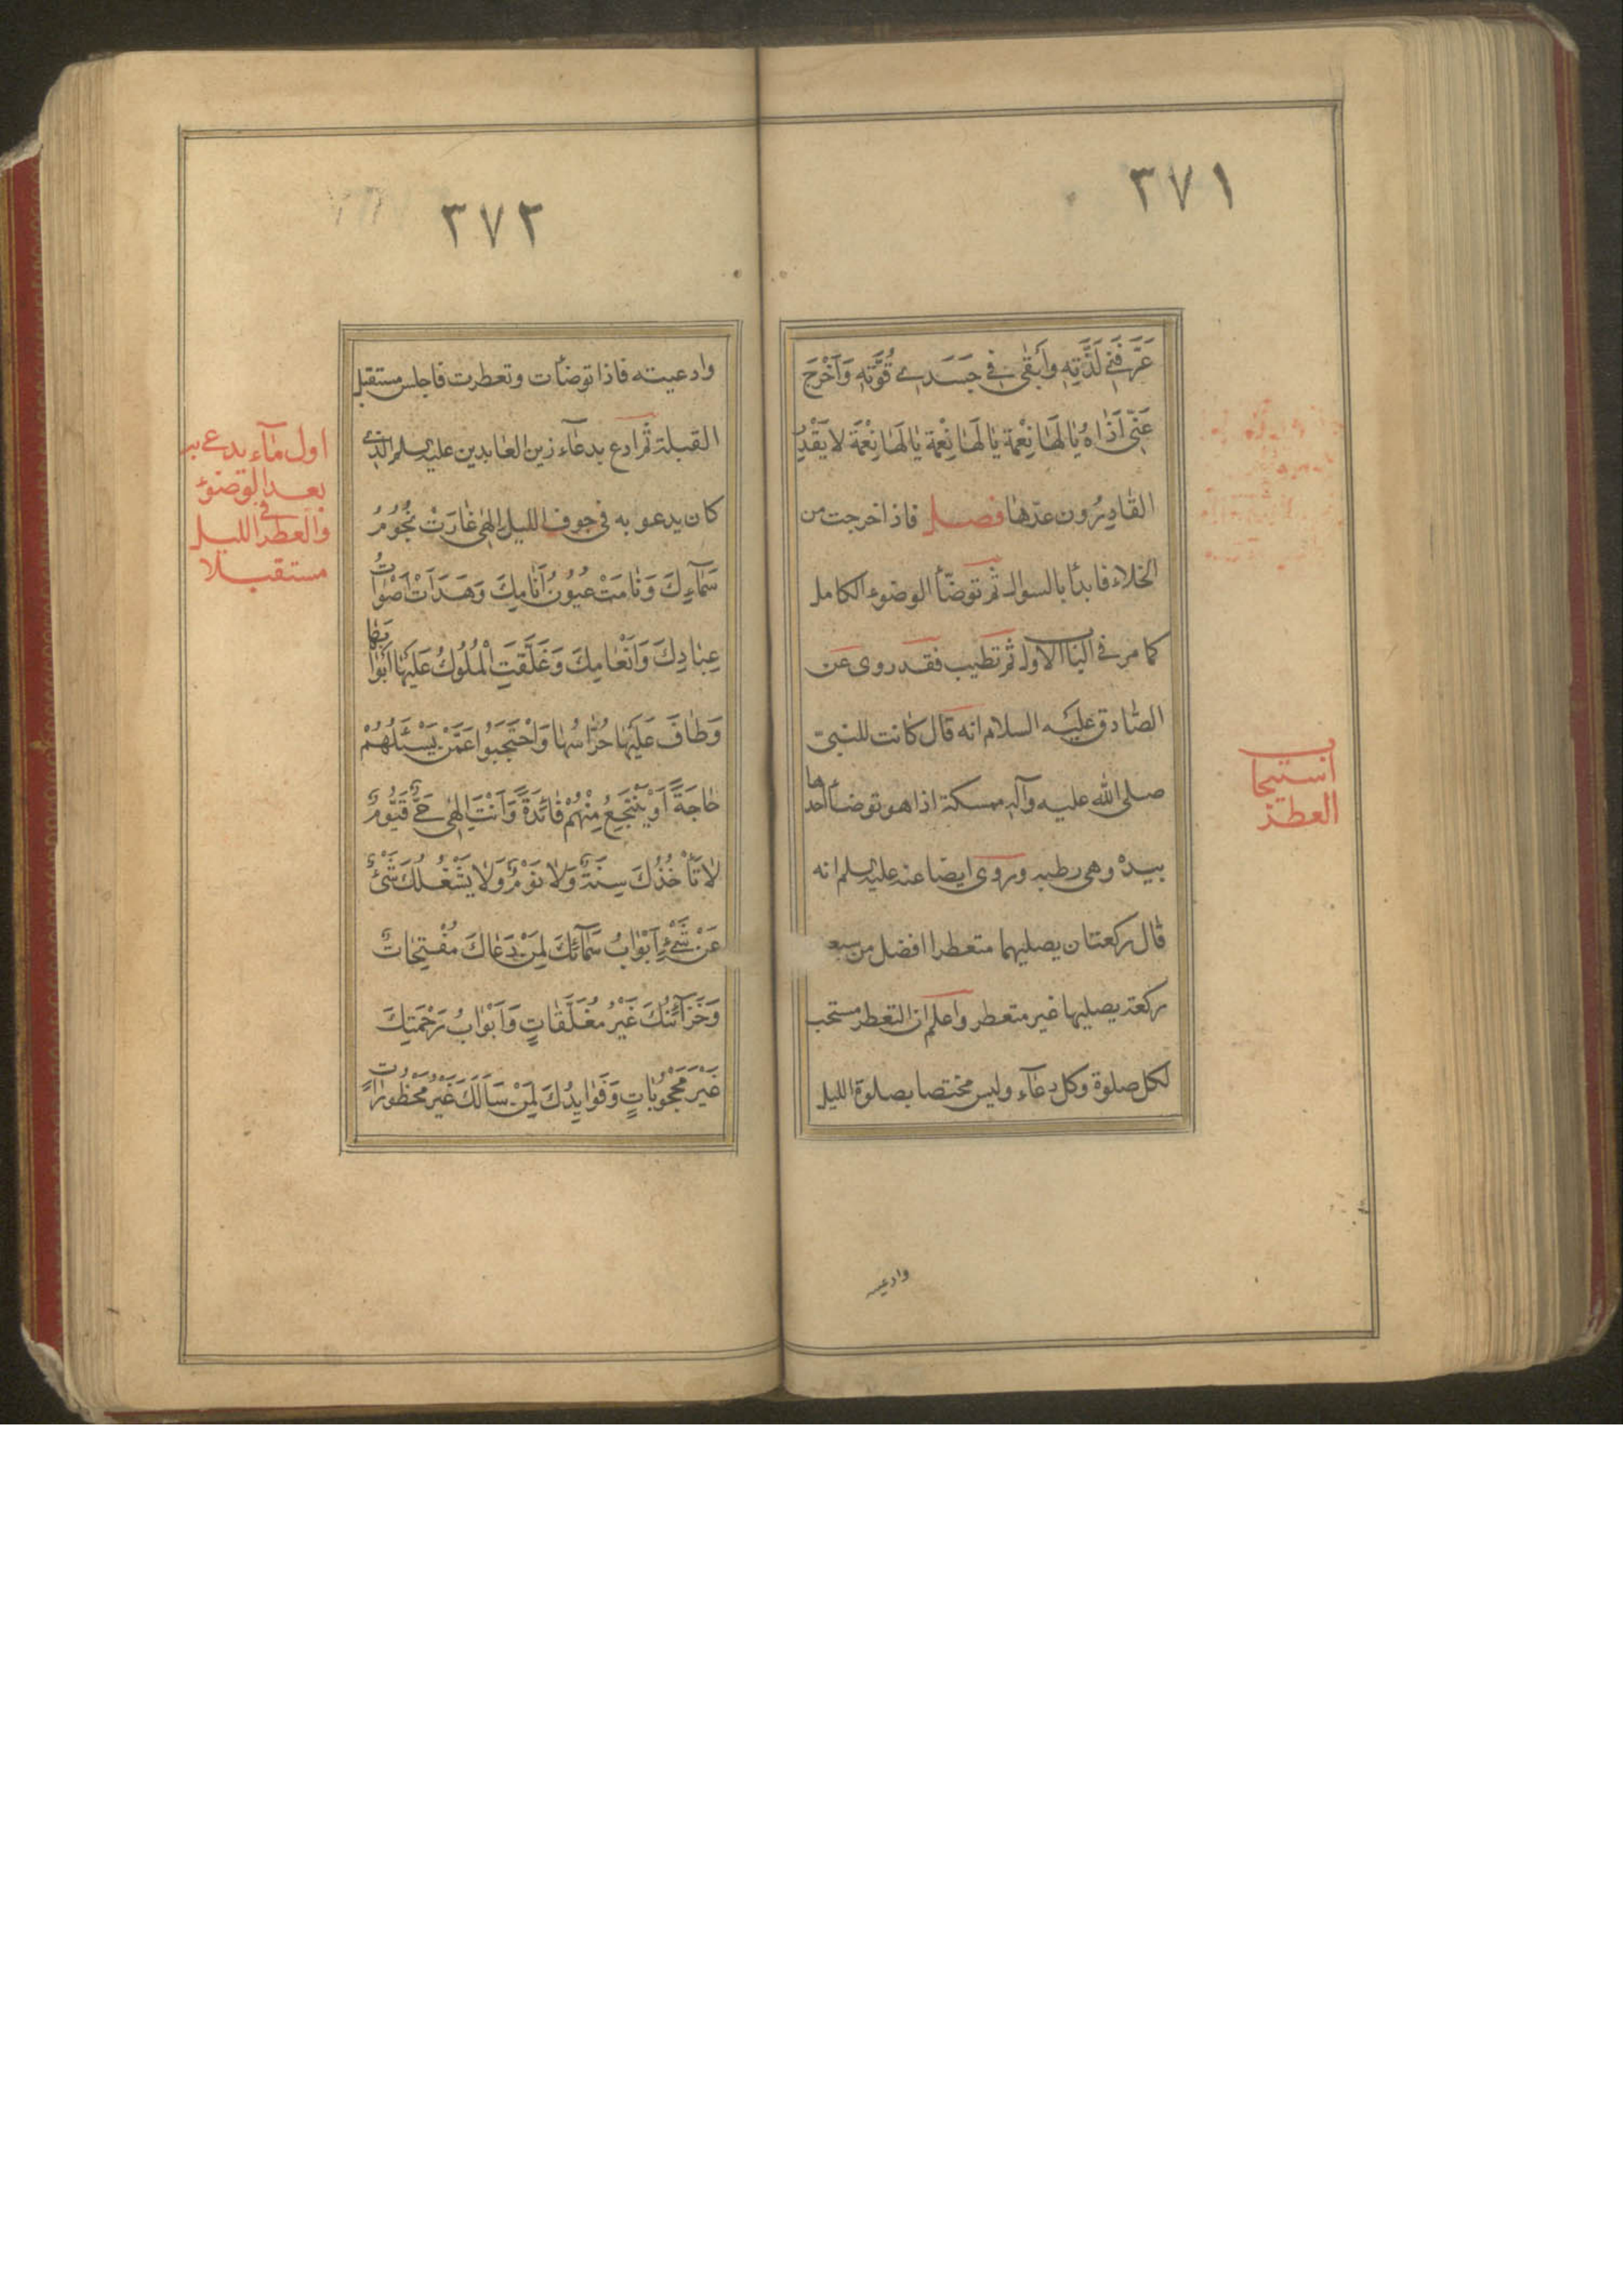 ٣٧١
عَرَّفَنِي لَذَّتِهِ وَاَبْقٰى فِي جَسَدِي قُوَّتِهِ وَاَخْرَجَ
عَنّي اَذٰاهُ يٰا لَهٰا نِعْمَة يٰا لَهٰا نِعْمَة يٰا لَهٰا نِعْمَة لا يَقْدِرُ
القٰادِرُون عدّهٰا فصل فاذا خرجت من
الخلاء فابدأ بالسواك ثم توضّأ الوضوء الكامل
كما مر في الباب الاول ثم تطيب فقد روى عن
الصّادق عليه السلام انه قال كانت للنبيّ
صلى الله عليه وآله ممسكة اذا هو توضأ اخذها
بيده وهى رطبه وروى ايضا عنه عليه السلم انه
قال ركعتان يصليهما متعطرا افضل من سبعـ
ركعة يصليها غير متعطر واعلم ان التعطر مستحب
لكل صلوة وكل دعآء وليس مختصا بصلوة الليل
استحباب
العطر
وادعيته
٣٧٢
وادعيته فاذا توضأت وتعطرت فاجلس مستقبل
القبلة ثم ادع بدعآء زين العابدين عليه السلم الذي
كان يدعو به في جوف الليل اِلهٰي غٰارَتْ نُجُومُ
سَمٰآءِكَ وَنٰامَتْ عُيُونُ اَنٰامِكَ وَهَدَاَتْ اَصْوٰاتُ
عِبٰادِكَ وَاَنْعٰامِكَ وَغَلَّقَتِ الْمُلُوكُ عَلَيْهٰا اَبْوٰابَهٰا
وَطٰافَ عَلَيْهٰا حُرّٰاسُهٰا وَاحْتَجَبُوا عَمَّنْ يَسْئَلُهُمْ
حٰاجَةً اَوْ يَنْتَجِعُ مِنْهُمْ فٰائِدَةً وَاَنْتَ اِلهٰي حَيٌّ قَيُّومٌ
لاٰ تَأْخُذُكَ سِنَةٌ وَلاٰ نَوْمٌ وَلاٰ يَشْغَلُكَ شَيْءٌ
عَنْ شَيْءٍ اَبْوٰابُ سَمٰآئِكَ لِمَنْ دَعٰاكَ مُفْتِحٰاتٌ
وَخَزٰآئِنُكَ غَيْرُ مُغَلَّقٰاتٍ وَاَبْوٰابُ رَحْمَتِكَ
غَيْرُ مَحْجُوبٰاتٍ وَفَوٰايِدُكَ لِمَنْ سَاَلَكَ غَيْرُ مَحْظُورٰاتٍ
اول مٰآء يدعى به
بعد الوضوء
والعطر في الليل
مستقبلا